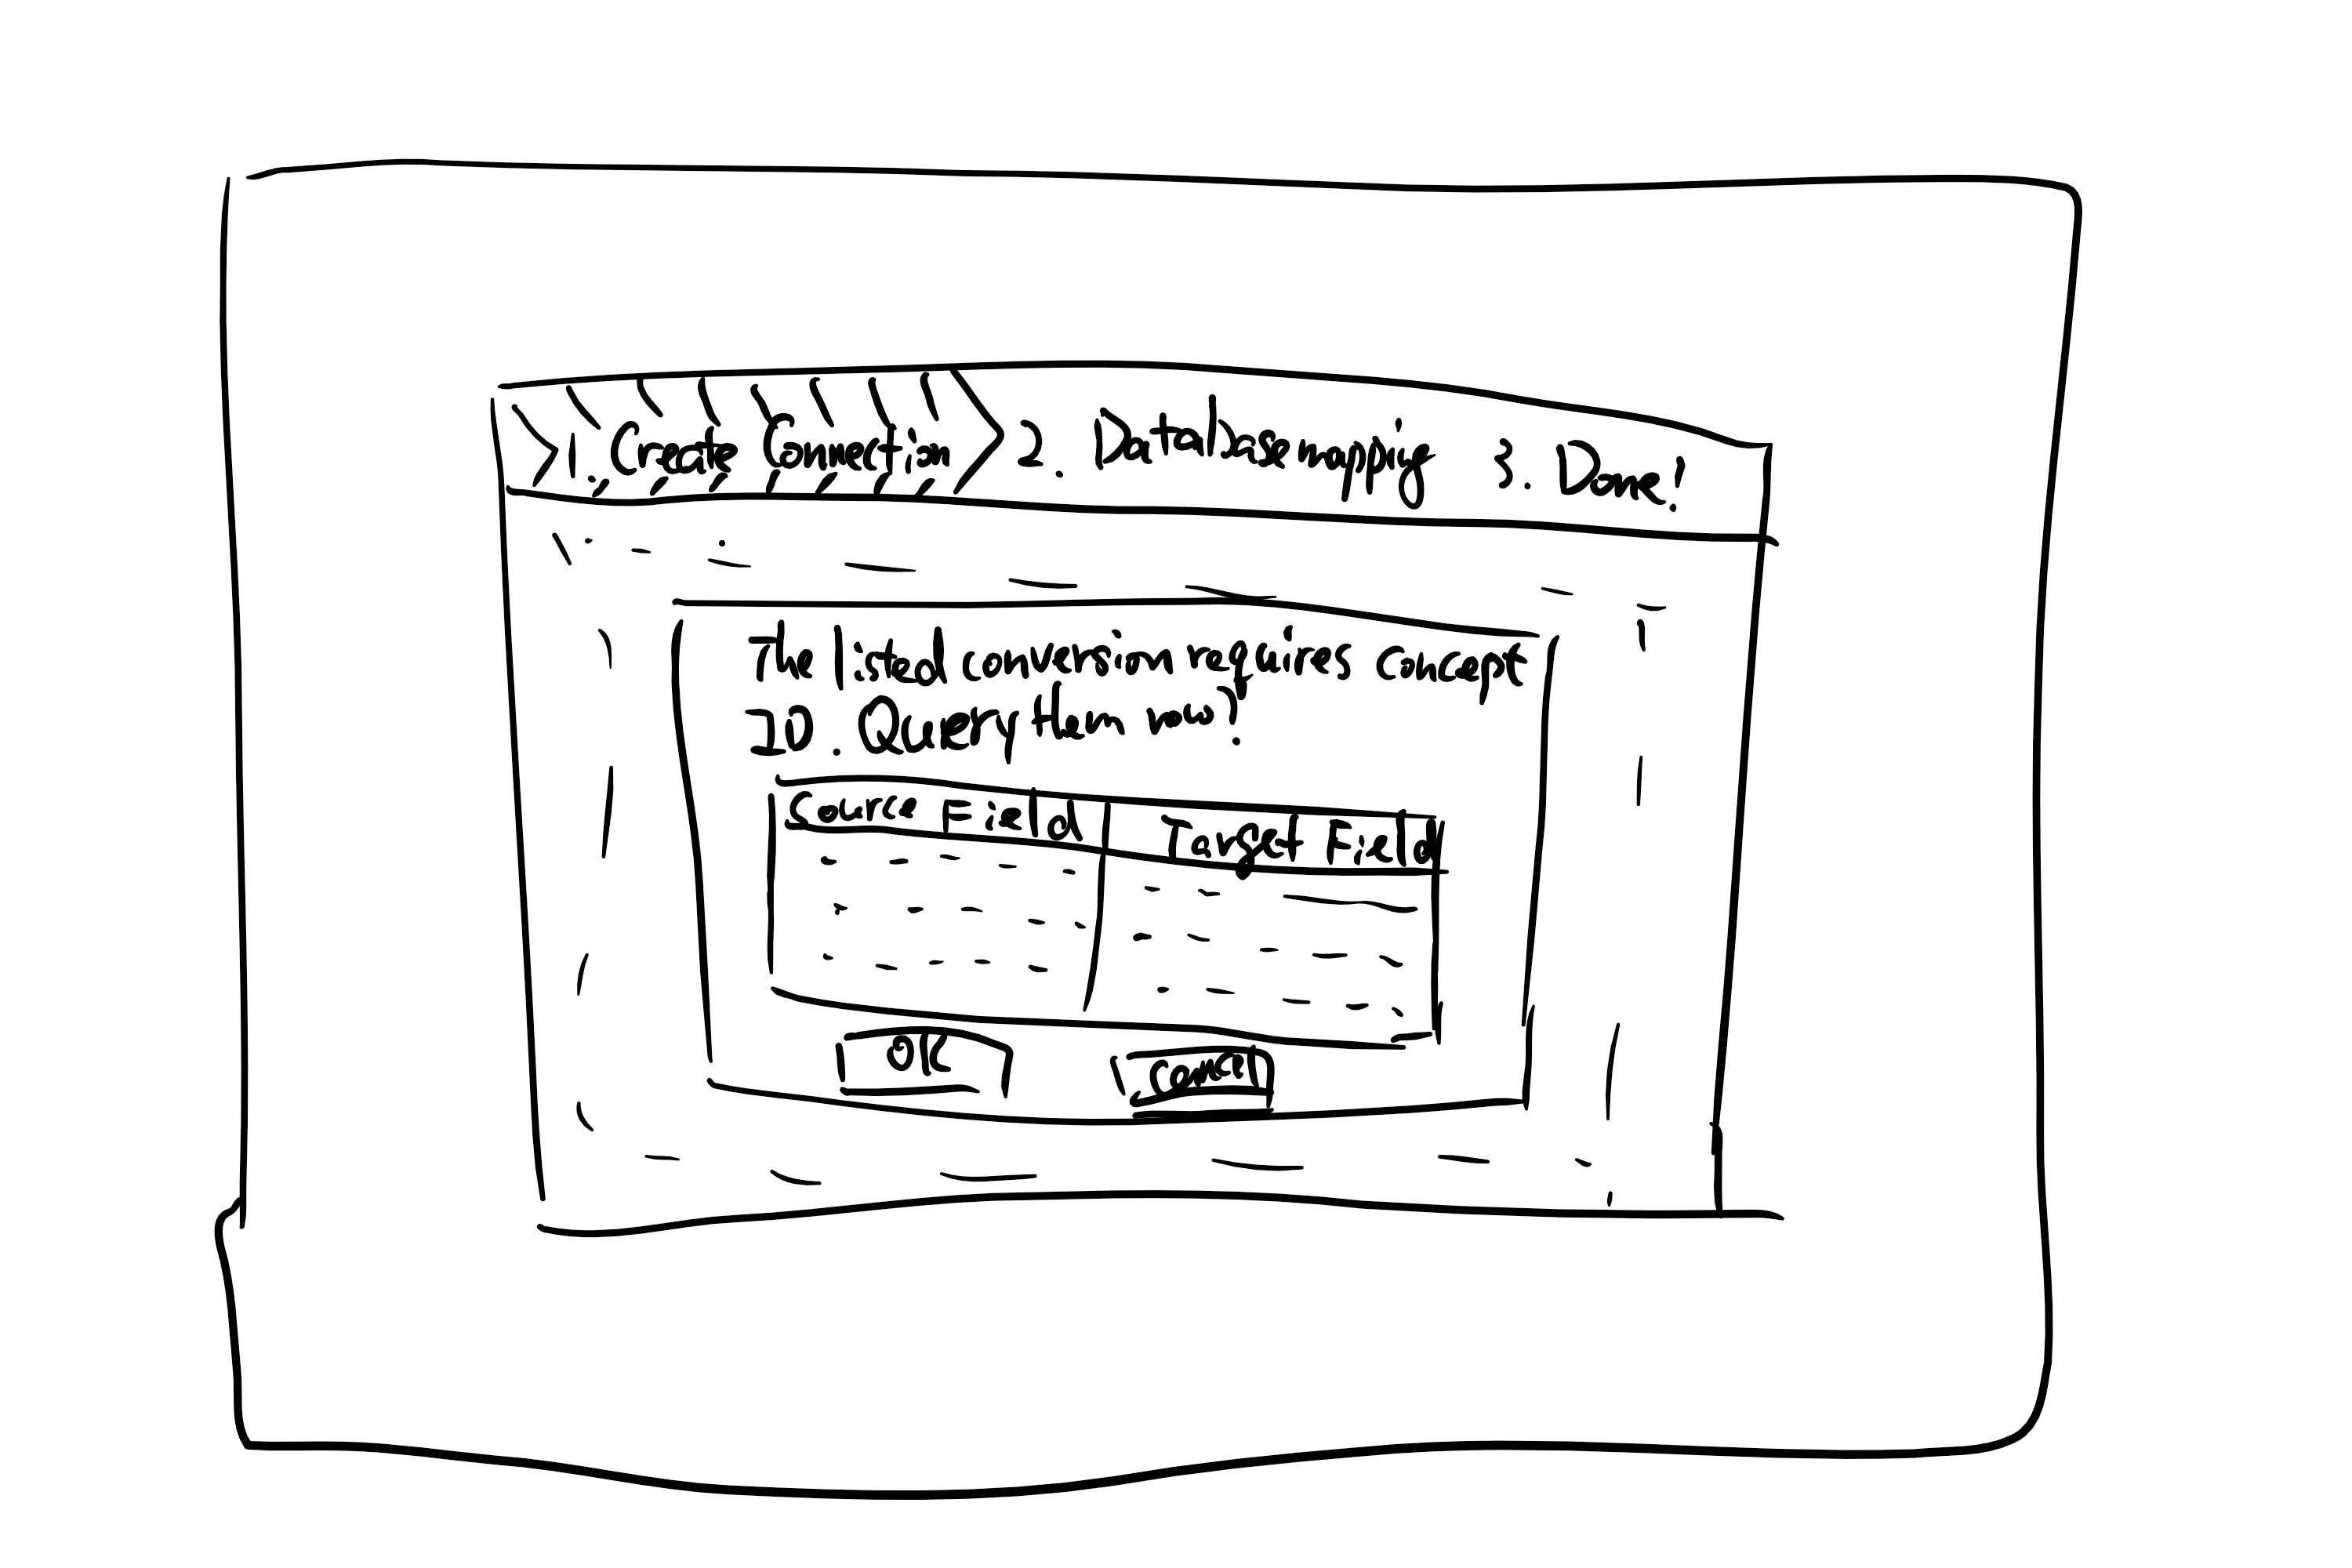 1. Create Connection 2. Database mapping 3. Done!
The listed conversion requires concept
ID. Query them now?
Source Field Target Field
OK Cancel